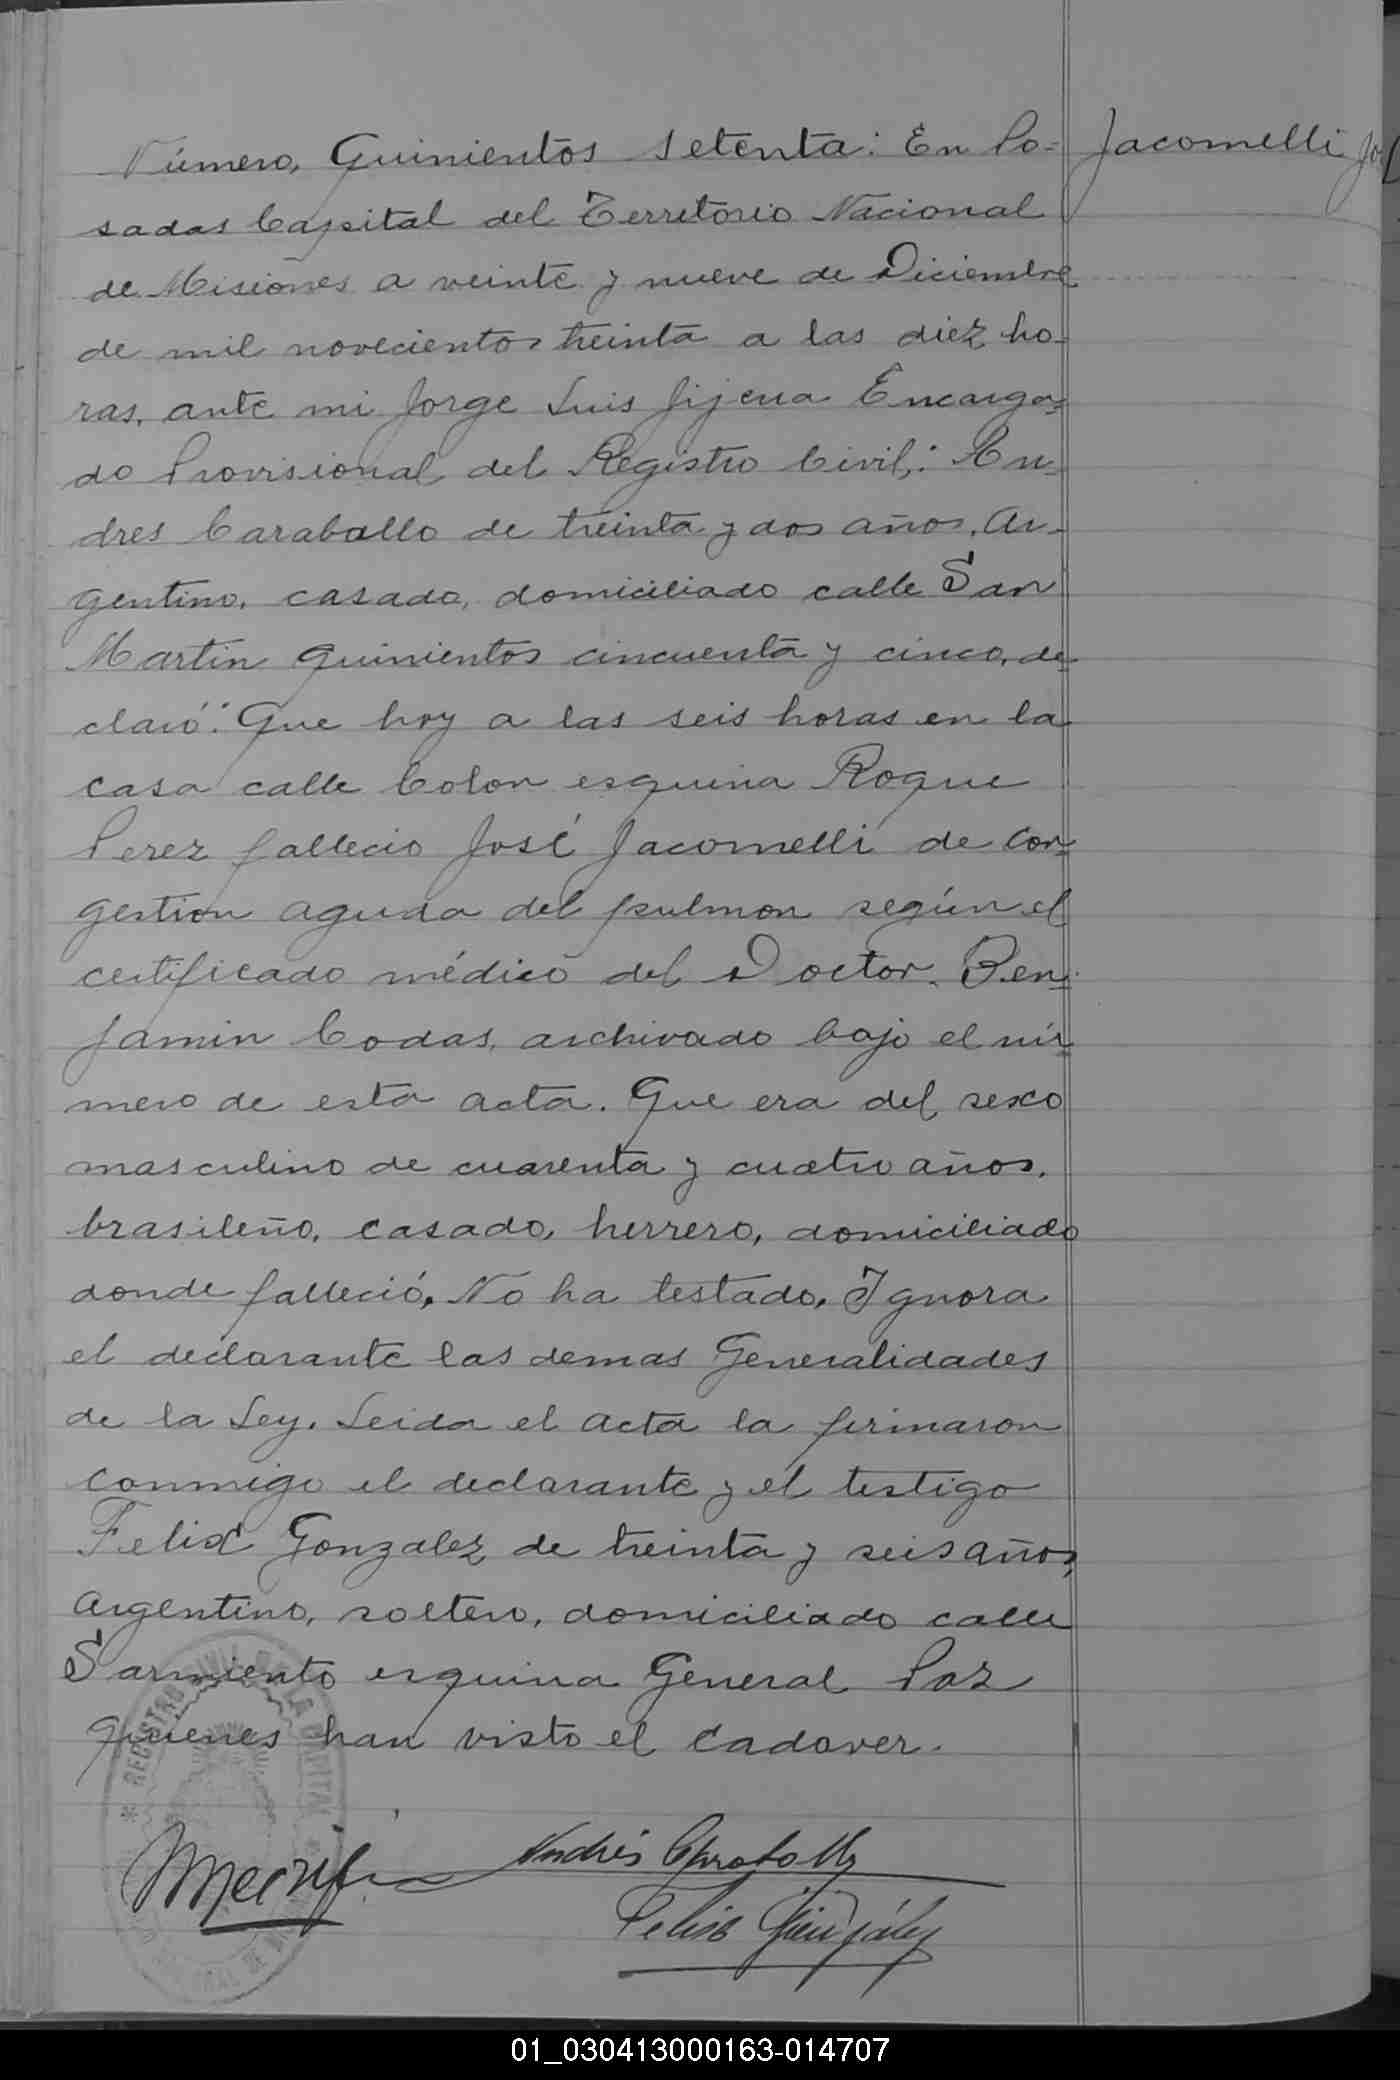 Número, Quinientos setenta: En Po-
Jacomelli Jo
sadas Capital del Territorio Nacional
de Misiones a veinte y nueve de Diciembre
de mil novecientos treinta a las diez ho-
ras, ante mi Jorge Luis Jijena Encarga-
do Provisional del Registro Civil,: An-
dres Caraballo de treinta y dos años, Ar-
gentino, casado, domiciliado calle San
Martin quinientos cincuenta y cinco, de-
claró: Que hoy a las seis horas en la
casa calle Colon esquina Roque
Perez fallecio José Jacomelli de con-
gestion aguda del pulmon según el
certificado médico del Doctor. Ben-
jamin Codas, archivado bajo el nú-
mero de esta acta. Que era del sexo
masculino de cuarenta y cuatro años,
brasileño, casado, herrero, domiciliado
donde falleció, No ha testado, Ignora
el declarante las demas Generalidades
de la Ley. Leida el acta la firmaron
conmigo el declarante y el testigo
Felix Gonzalez de treinta y seis años,
Argentino, soltero, domiciliado calle
Sarmiento esquina General Paz
quienes han visto el cadaver.
REGISTRO CIVIL DE LA CAPITAL
Andrés Caraballo
Felix González
01_030413000163-014707